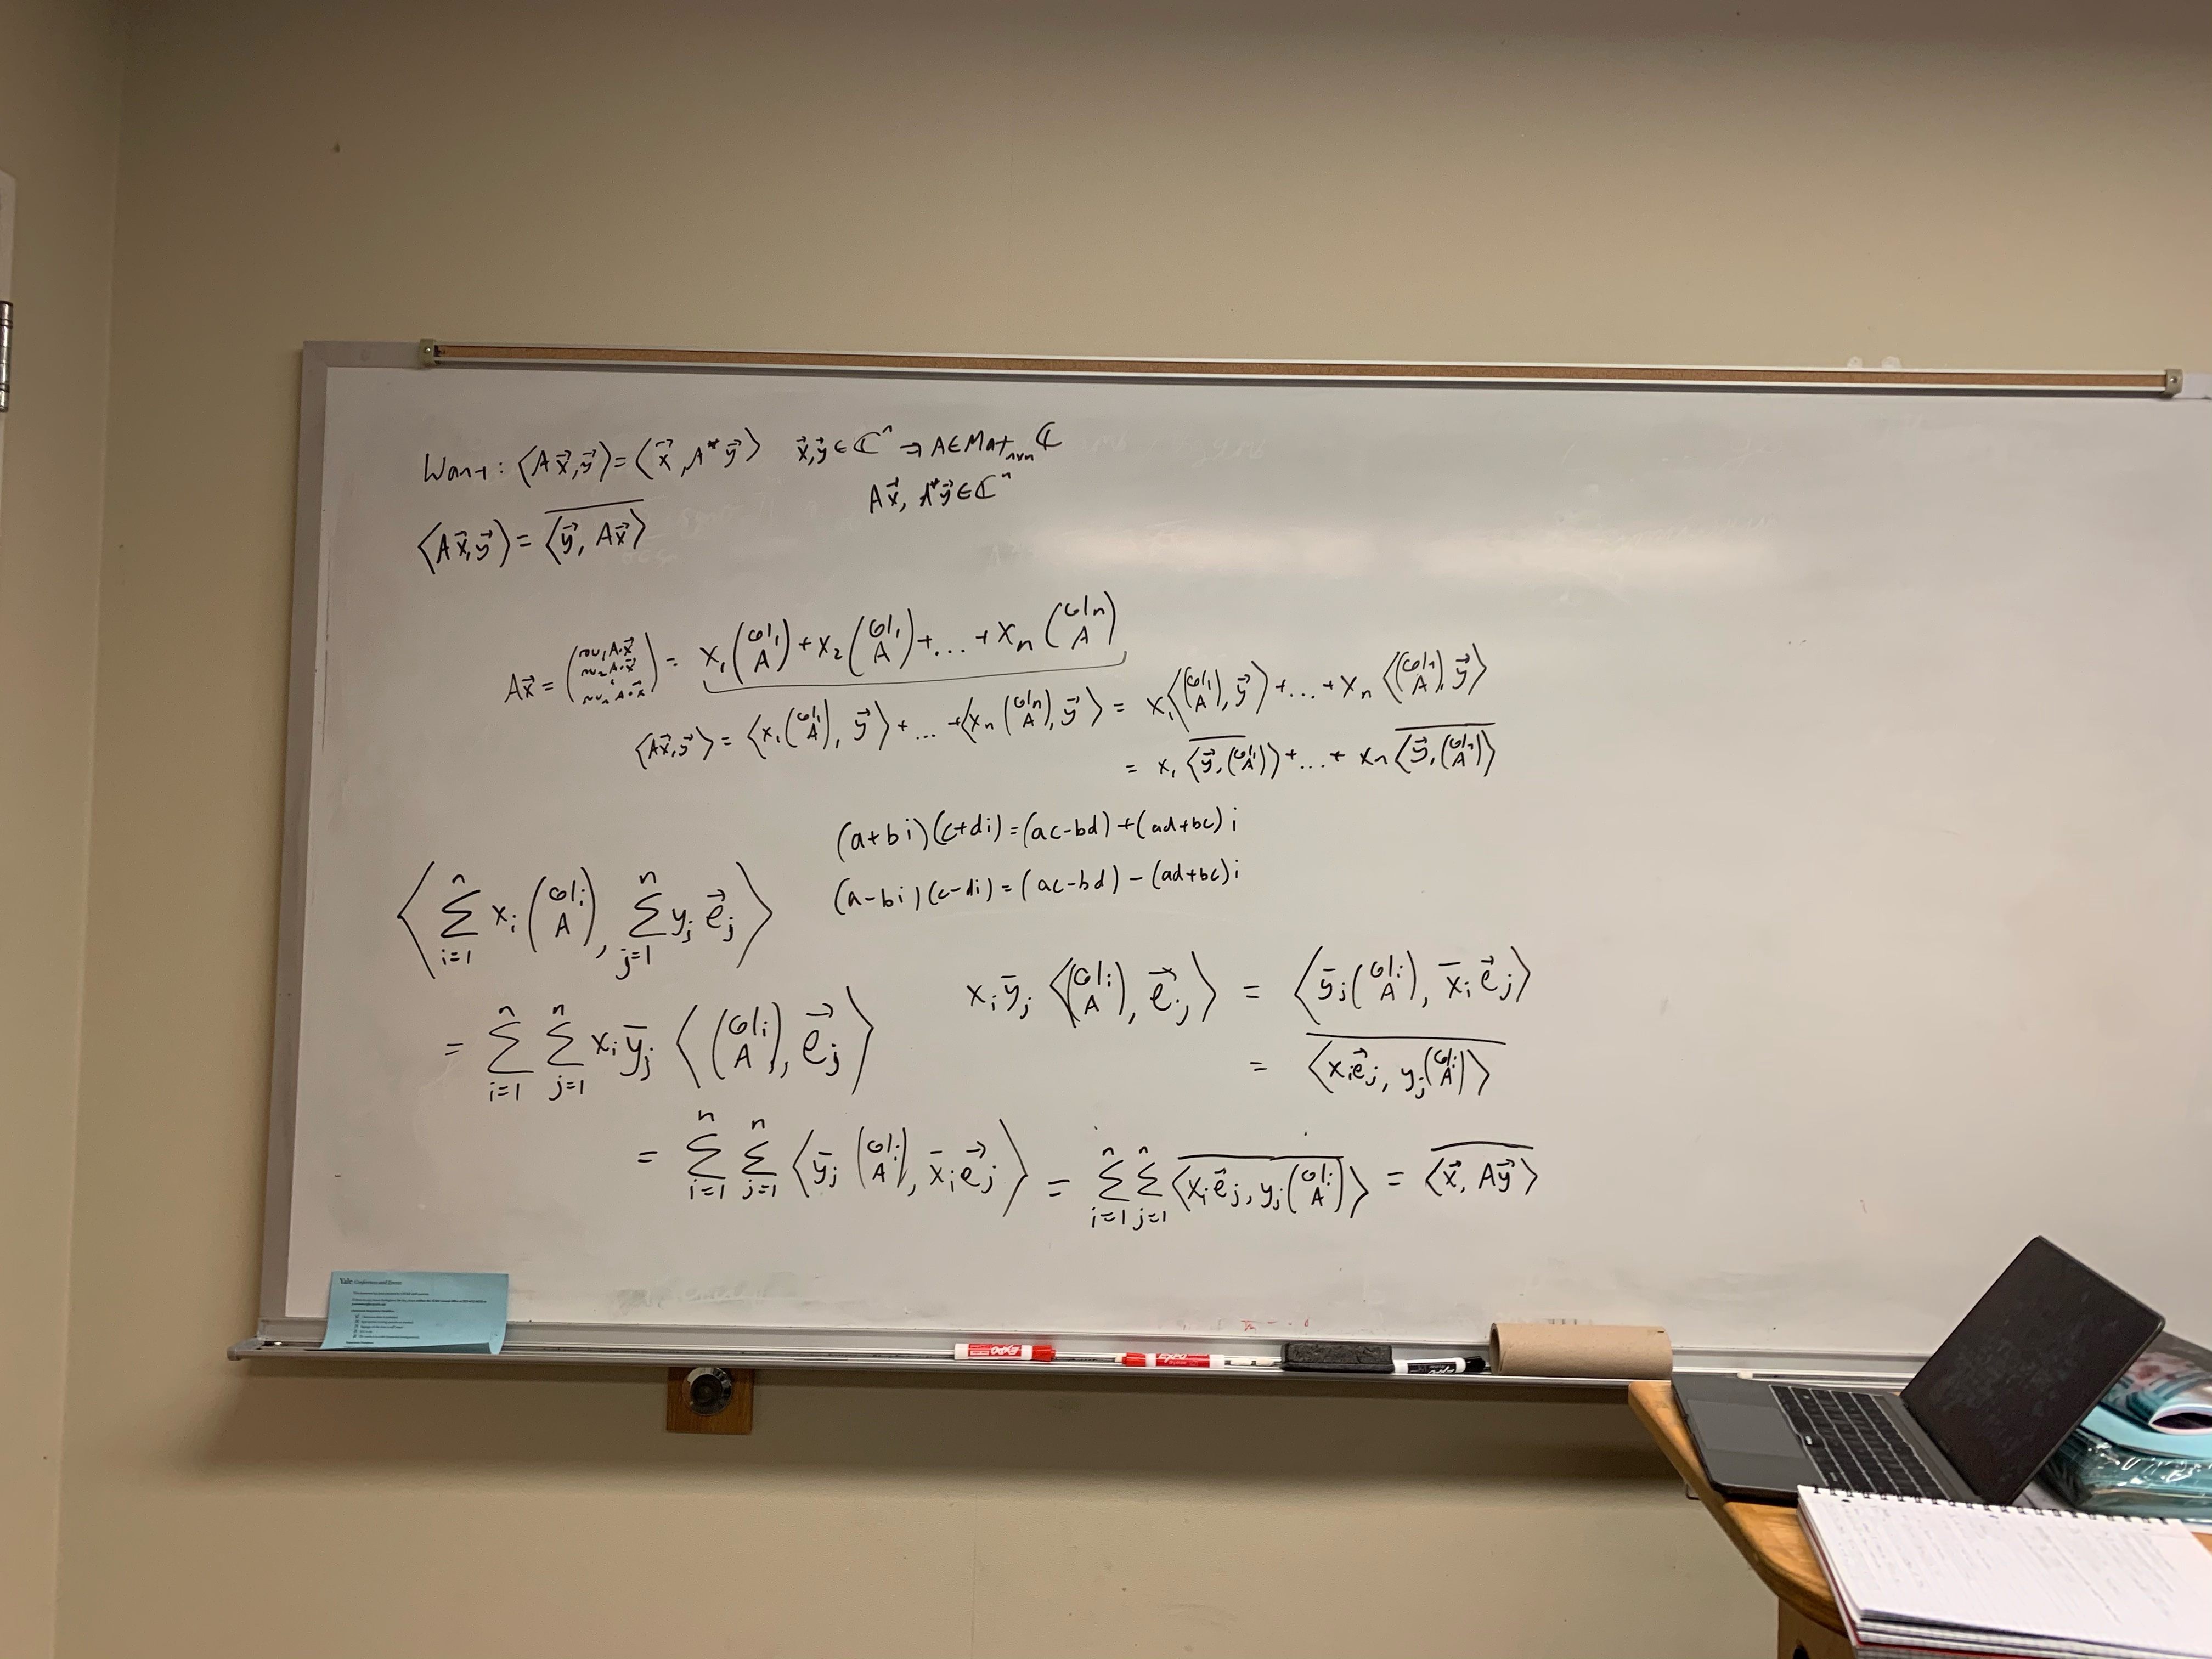 Want: ⟨Ax⃗,y⃗⟩=⟨x⃗,A*y⃗⟩ x⃗,y⃗∈ℂⁿ → A∈Matₙₓₙℂ
Ax⃗, A*y⃗∈ℂⁿ
⟨Ax⃗,y⃗⟩ = \overline{⟨y⃗, Ax⃗⟩}
Ax⃗ = (row₁A·x⃗ row₂A·x⃗ ⋮ rowₙA·x⃗) = x₁(col₁ A) + x₂(col₁ A) + ... + xₙ(colₙ A)
⟨Ax⃗,y⃗⟩ = ⟨x₁(col₁ A), y⃗⟩ + ... + ⟨xₙ(colₙ A), y⃗⟩ = x₁⟨(col₁ A), y⃗⟩ + ... + xₙ⟨(colₙ A), y⃗⟩
= x₁\overline{⟨y⃗, (col₁ A)⟩} + ... + xₙ\overline{⟨y⃗, (colₙ A)⟩}
(a+bi)(c+di)=(ac-bd)+(ad+bc)i
(a-bi)(c-di)=(ac-bd)-(ad+bc)i
⟨∑_{i=1}^{n} xᵢ(colᵢ A), ∑_{j=1}^{n} yⱼe⃗ⱼ⟩
= ∑_{i=1}^{n} ∑_{j=1}^{n} xᵢȳⱼ⟨(colᵢ A), e⃗ⱼ⟩
xᵢȳⱼ⟨(colᵢ A), e⃗ⱼ⟩ = ⟨ȳⱼ(colᵢ A), x̄ᵢe⃗ⱼ⟩
= \overline{⟨xᵢe⃗ⱼ, yⱼ(colᵢ A)⟩}
= ∑_{i=1}^{n} ∑_{j=1}^{n} ⟨ȳⱼ(colᵢ A), x̄ᵢe⃗ⱼ⟩ = ∑_{i=1}^{n} ∑_{j=1}^{n} \overline{⟨xᵢe⃗ⱼ, yⱼ(colᵢ A)⟩} = \overline{⟨x⃗, Ay⃗⟩}
Yale Conference and Events
EXPO
EXPO